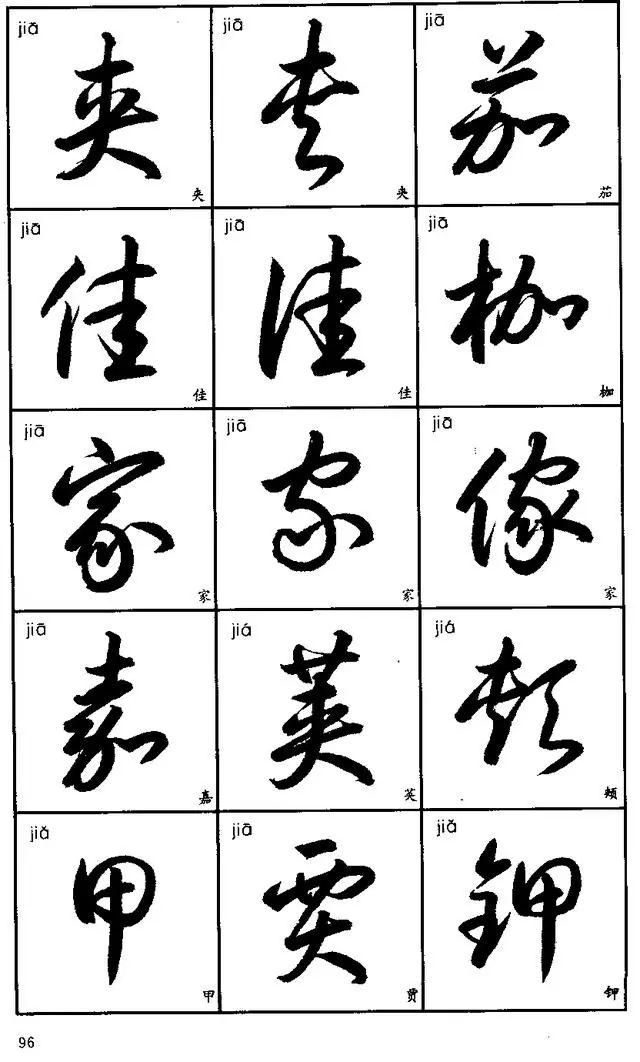 jiā jiā jiā
夾 夾 茄
夹 夹 茄
jiā jiā jiā
佳 佳 枷
佳 佳 枷
jiā jiā jiā
家 家 傢
家 家 家
jiā jiá jiá
嘉 莢 頰
嘉 荚 颊
jiǎ jiā jiǎ
甲 賈 鉀
甲 贾 钾
96